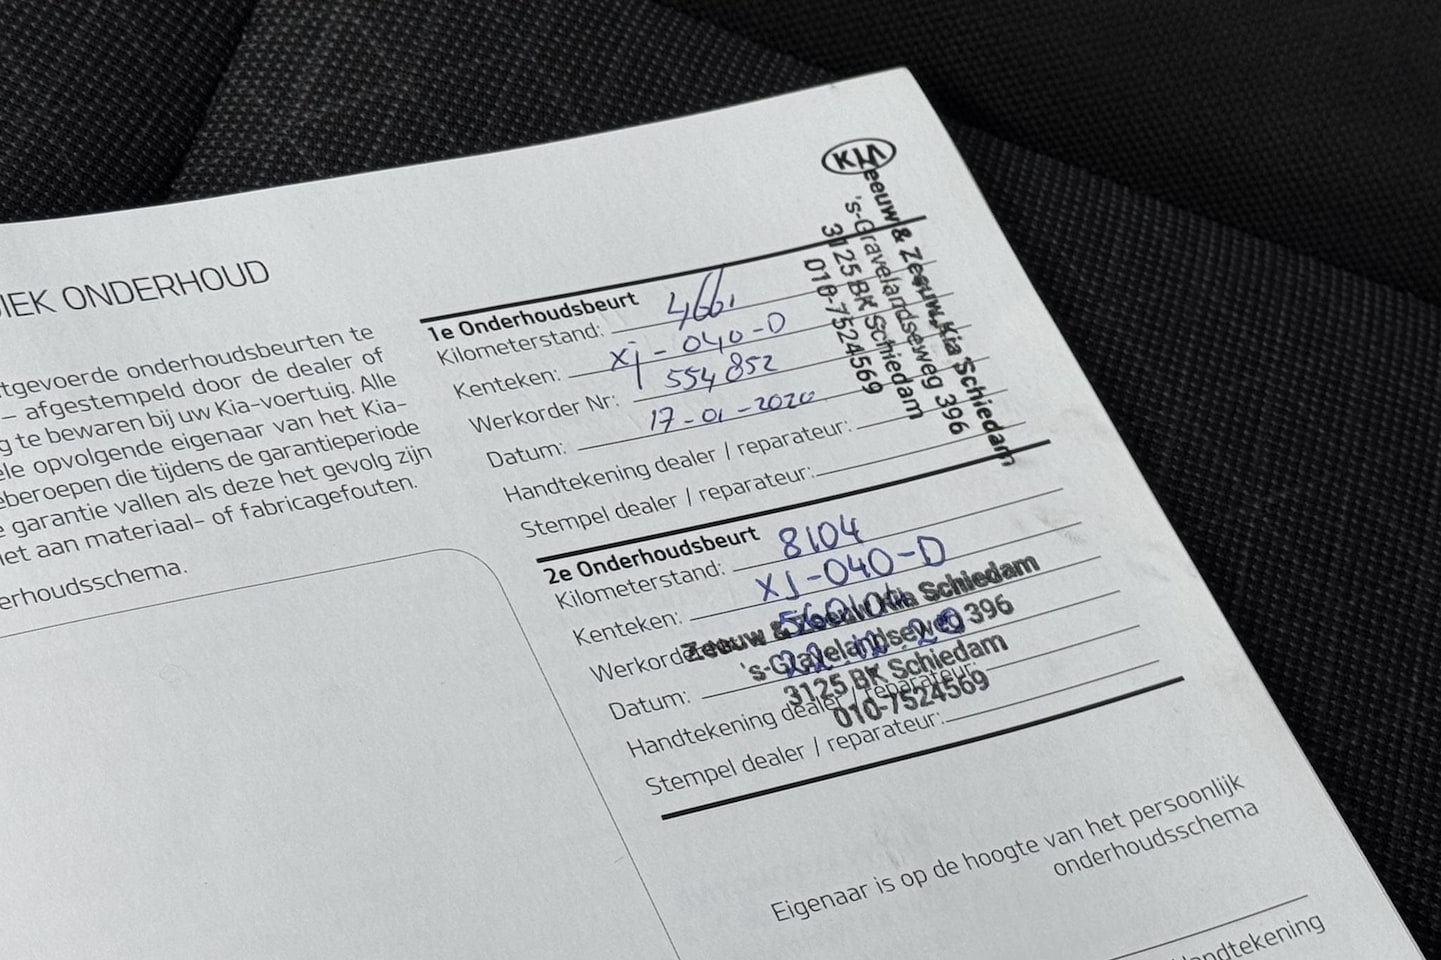 IEK ONDERHOUD
tgevoerde onderhoudsbeurten te
– afgestempeld door de dealer of
g te bewaren bij uw Kia-voertuig. Alle
le opvolgende eigenaar van het Kia-
eberoepen die tijdens de garantieperiode
e garantie vallen als deze het gevolg zijn
iet aan materiaal- of fabricagefouten.
erhoudsschema.
KIA
Zeeuw & Zeeuw, Kia Schiedam
's-Gravelandseweg 396
3125 BK Schiedam
010-7524569
1e Onderhoudsbeurt
Kilometerstand: 4661
Kenteken: XJ-040-D
Werkorder Nr: 554852
Datum: 17-01-2020
Handtekening dealer / reparateur:
Stempel dealer / reparateur:
2e Onderhoudsbeurt
Kilometerstand: 8104
Kenteken: XJ-040-D
Werkorde
Datum: 22.12.20
Handtekening dealer / reparateur:
Stempel dealer / reparateur:
Zeeuw & Zeeuw, Kia Schiedam
's-Gravelandseweg 396
3125 BK Schiedam
010-7524569
Eigenaar is op de hoogte van het persoonlijk
onderhoudsschema
andtekening